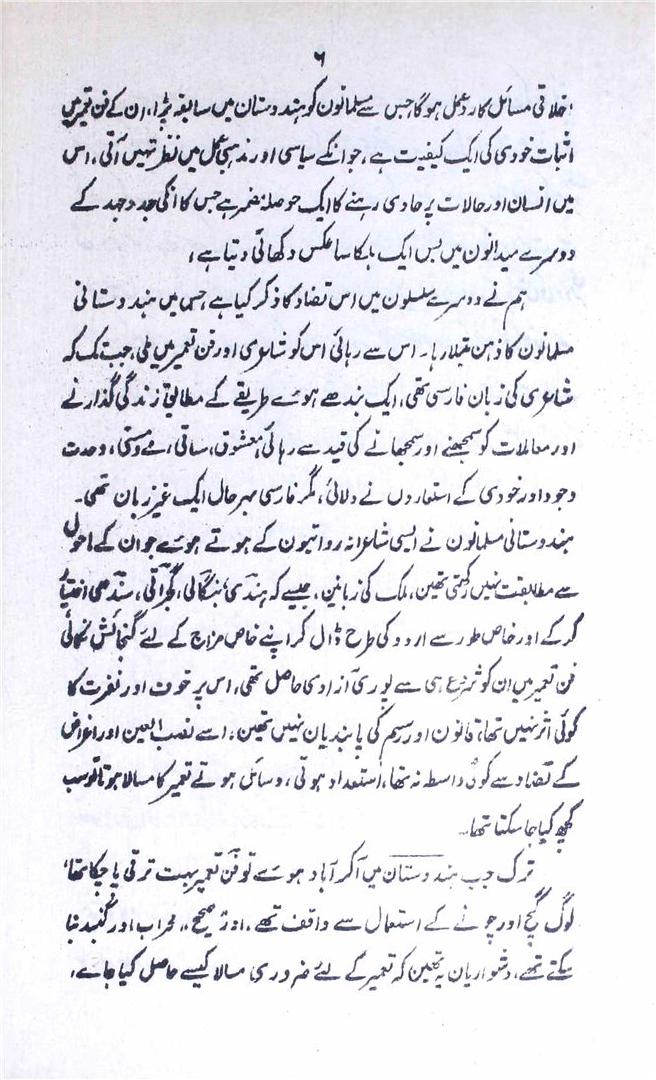 ۶
اخلاقی مسائل کا ردعمل ہوگا، جس سے مسلمانوں کو ہندوستان میں سابقہ پڑا، ان کے فن تعمیر میں
اثبات خودی کی ایک کیفیت ہے، جو انکے سیاسی اور مذہبی عمل میں نظر نہیں آتی، اس
میں انسان اور حالات پر حاوی رہنے کا ایک حوصلہ مضمر ہے جس کا انکی جد و جہد کے
دوسرے میدانوں میں بس ایک ہلکا سا عکس دکھائی دیتا ہے،
ہم نے دوسرے سلسلوں میں اس تضاد کا ذکر کیا ہے جس میں ہندوستانی
مسلمانوں کا ذہن مبتلا رہا۔ اس سے رہائی اس کو شاعری اور فن تعمیر میں ملی، جب تک کہ
شاعری کی زبان فارسی تھی، ایک بندھے ہوئے طریقے کے مطابق زندگی گذارنے
اور معاملات کو سمجھنے اور سمجھانے کی قید سے رہائی، معشوق، ساقی، مے و مستی، وحدت
وجود اور خودی کے استعاروں نے دلائی، مگر فارسی بہرحال ایک غیر زبان تھی۔
ہندوستانی مسلمانوں نے ایسی شاعرانہ روایتیوں کے ہوتے ہوئے جو ان کے احوال
سے مطابقت نہیں رکھتی تھیں، ملک کی زبانیں، جیسے کہ ہندی، بنگالی، گجراتی، سندھی اختیار
کرکے اور خاص طور سے اردو کی طرح ڈال کر اپنے خاص مزاج کے لئے گنجائش نکالی
فن تعمیر میں ان کو شروع ہی سے پوری آزادی حاصل تھی، اس پر خوف اور نفرت کا
کوئی اثر نہیں تھا، قانون اور رسم کی پابندیاں نہیں تھیں، اسے نصب العین اور اغراض
کے تضاد سے کوئی واسطہ نہ تھا، استعداد ہوتی، وسائل ہوتے تعمیر کا مسالا ہوتا تو سب
کچھ کیا جا سکتا تھا۔
ترک جب ہندوستان میں آکر آباد ہوئے تو فن تعمیر بہت ترقی پا چکا تھا،
لوگ گچ اور چونے کے استعمال سے واقف تھے، اور صحیح،، محراب اور گنبد بنا
سکتے تھے، دشواریاں یہ تھیں کہ تعمیر کے لئے ضروری مسالا کیسے حاصل کیا جائے،